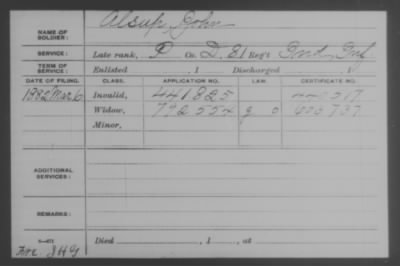 Alsup, John
NAME OF SOLDIER:
SERVICE: Late rank, P Co. D, 81 Reg't Ind. Inf.
TERM OF SERVICE: Enlisted , 1 Discharged , 1
DATE OF FILING. CLASS. APPLICATION NO. LAW. CERTIFICATE NO.
1882 Mar 6 Invalid, 441825
Widow, 792554
Minor,
ADDITIONAL SERVICES:
REMARKS:
Died , 1 , at